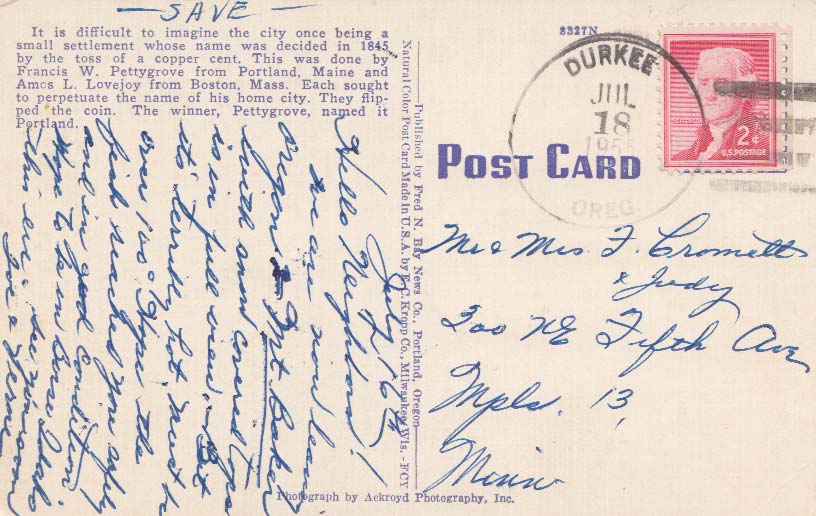 - SAVE -
It is difficult to imagine the city once being a
small settlement whose name was decided in 1845
by the toss of a copper cent. This was done by
Francis W. Pettygrove from Portland, Maine and
Amos L. Lovejoy from Boston, Mass. Each sought
to perpetuate the name of his home city. They flip-
ped the coin. The winner, Pettygrove, named it
Portland.
July 16th
Hello Neighbors!
We are now leaving
Oregon Mt. Baker
with snow covered tops
is in full view. But
its terribly hot, must b
over 100. Hope the
reached you safely
and in good condition
Hope to be in Boise Idaho
this eve. See you soon
Love
Published by Fred N. Bay News Co., Portland, Oregon
Natural Color Post Card Made in U.S.A. by E. C. Kropp Co., Milwaukee, Wis. - FCY
8327N
POST CARD
DURKEE
JUL
18
OREG
JEFFERSON
2¢
U.S. POSTAGE
Mr & Mrs. F. Cromett
& Judy
300 NE Fifth Ave
Mpls. 13,
Minn
Photograph by Ackroyd Photography, Inc.